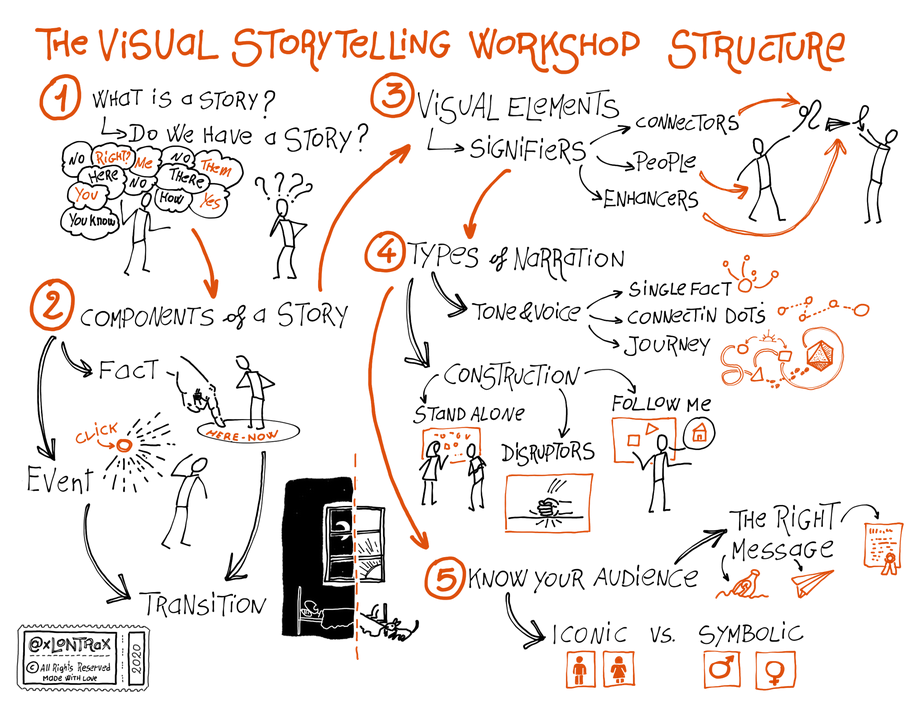 THE VISUAL STORYTELLING WORKSHOP STRUCTURE
1 WHAT IS a STORY?
DO WE HAVE a STORY?
NO
RIGHT?
Me
NO
THEM
HERE
NO
THERE
YOU
HOW
Yes
YOU KNOW
? ? ? ?
2 COMPONENTS of a STORY
FACT
HERE-NOW
CLICK
EVENT
TRANSITION
3 VISUAL ELEMENTS
SIGNIFIERS
CONNECTORS
PEOPLE
ENHANCERS
4 TYPES of NARRATION
TONE & VOICE
SINGLE FACT
CONNECTIN DOTS
JOURNEY
CONSTRUCTION
STAND ALONE
DISRUPTORS
FOLLOW ME
5 KNOW YOUR AUDIENCE
THE RIGHT
MESSAGE
ICONIC VS. SYMBOLIC
@xLONTRax
© All Rights Reserved
MADE WITH LOVE
2020